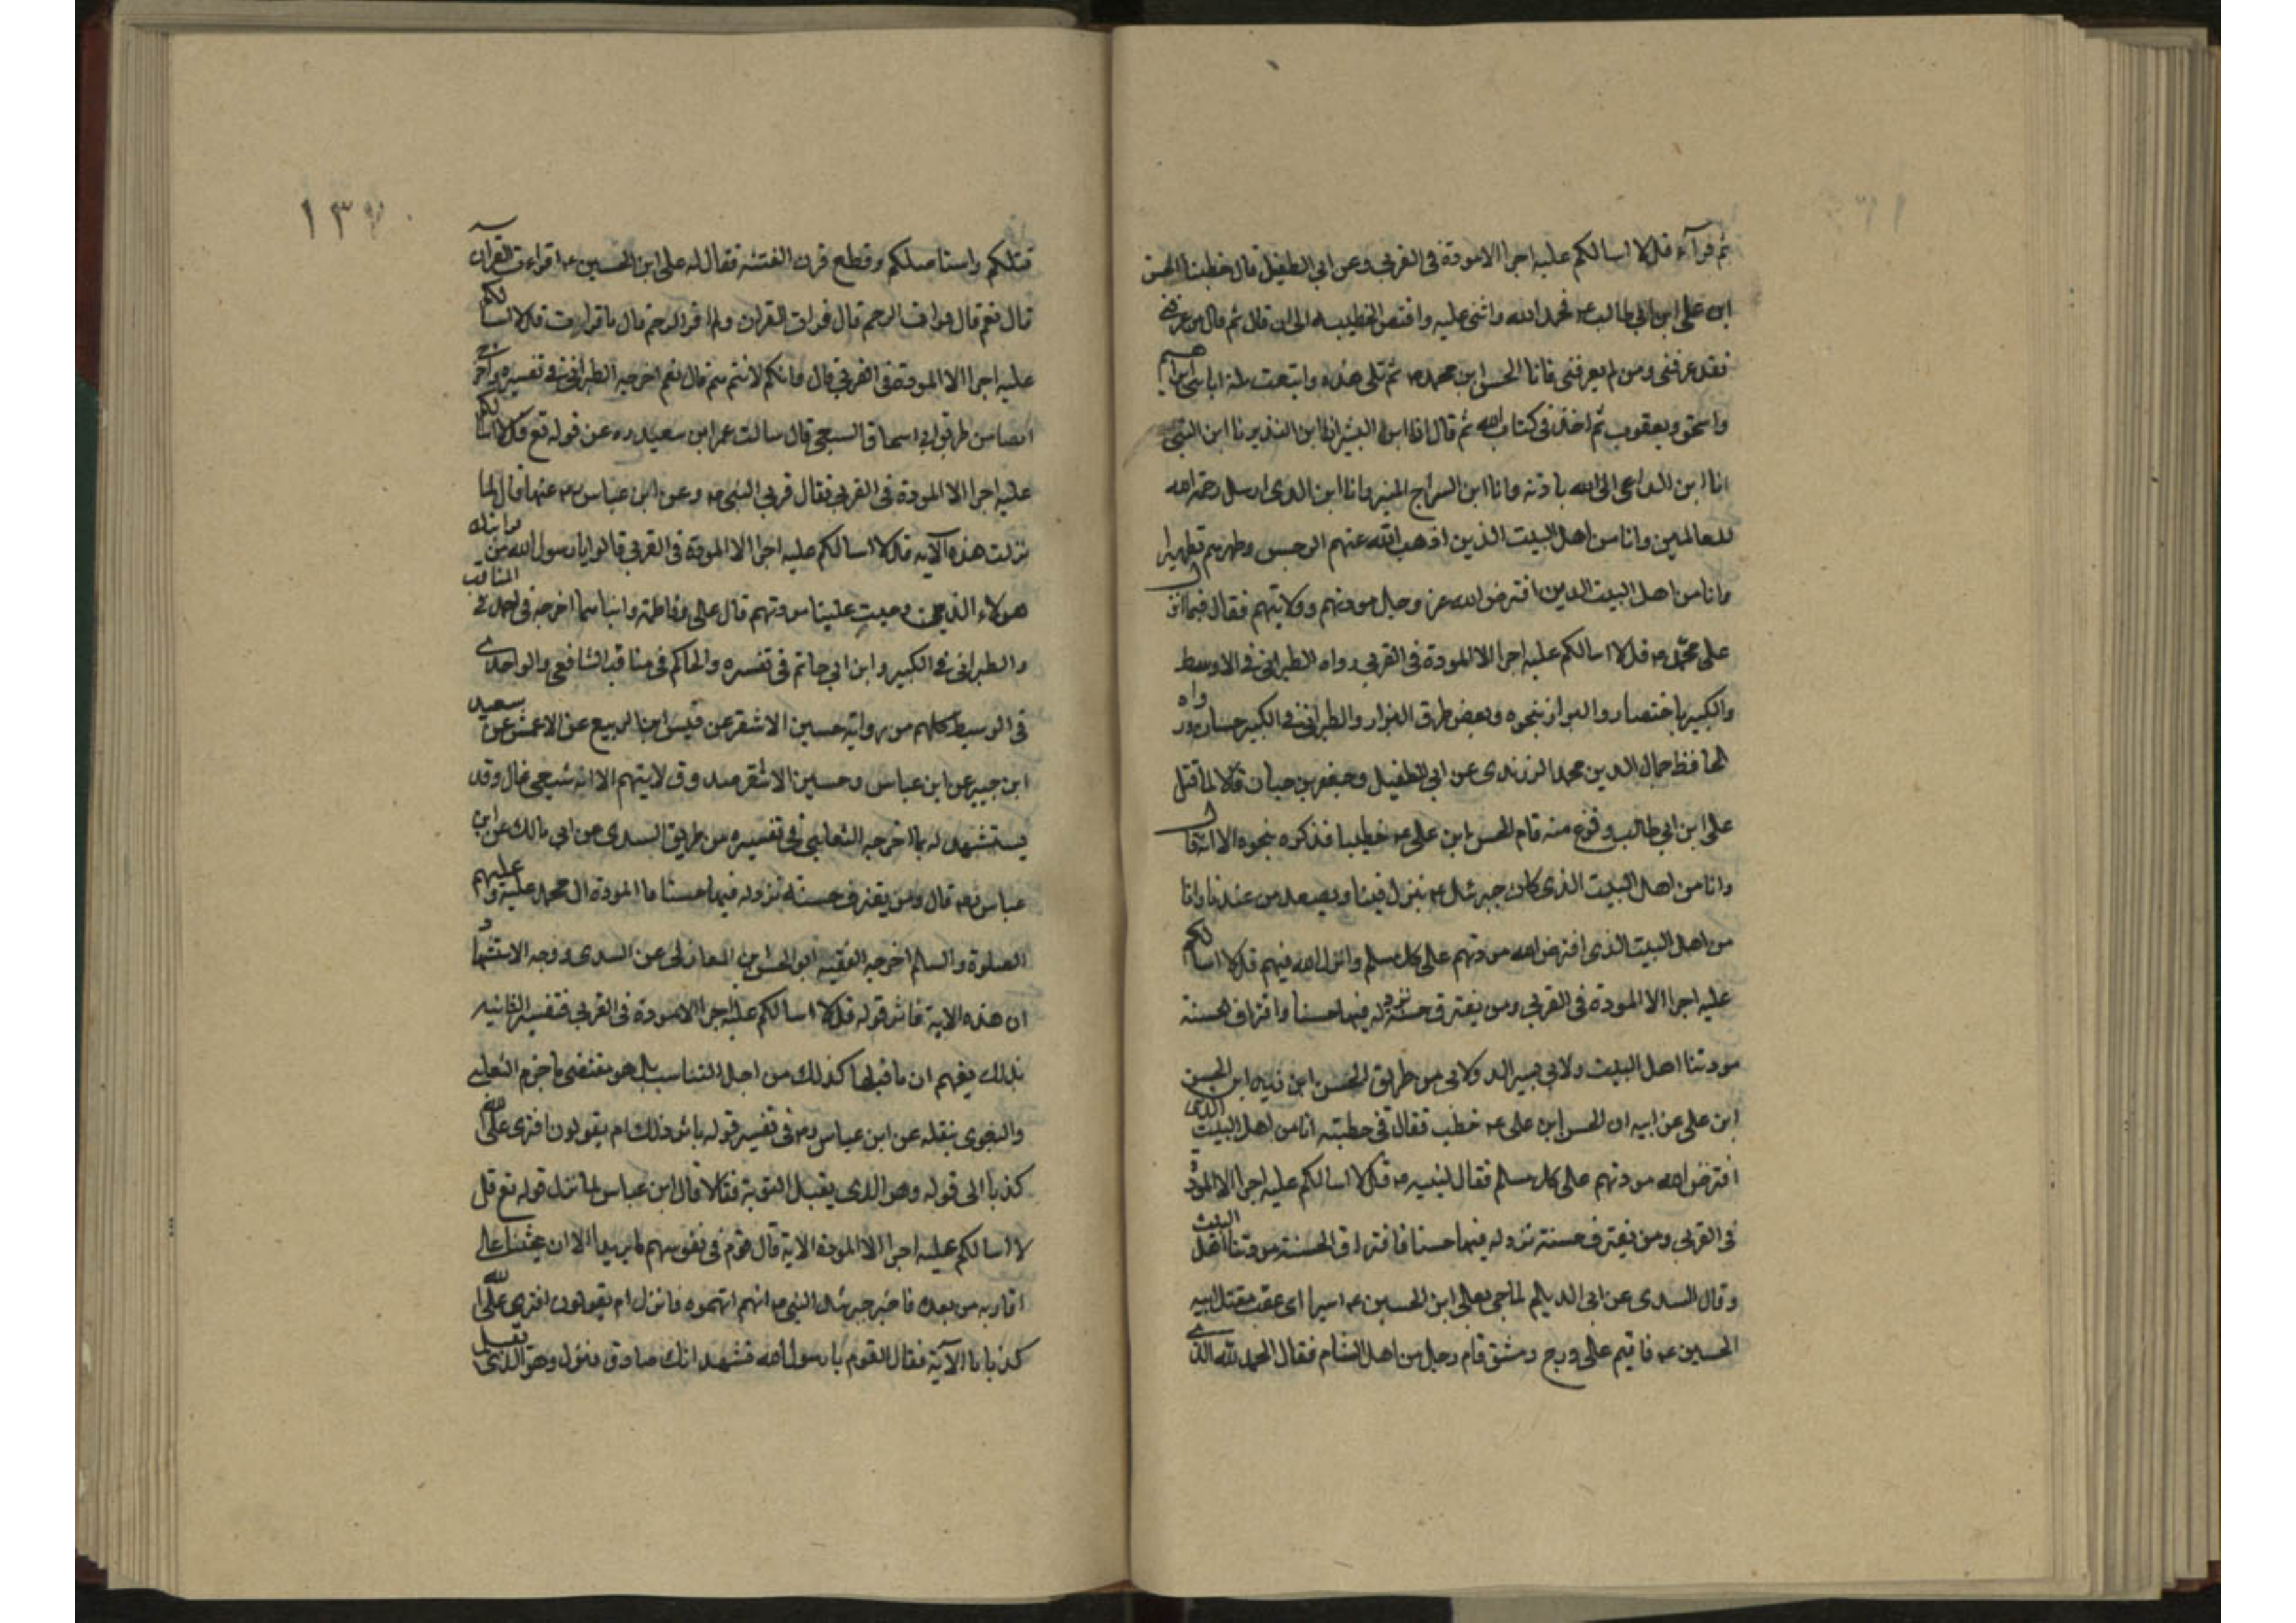 ثم قرآء قل لا اسالكم عليه اجرا الا مودة فى القربى وعن ابى الطفيل قال خطبنا الحسن
ابن على ابن ابى طالب ع فحمد الله واثنى عليه واقتص الخطيب الى ان قال ثم قال من عرفنى
فقد عرفنى ومن لم يعرفنى فانا الحسن ابن محمد ص ثم تلى هذه واتبعت ملة اباىى ابراهيم
واسحق ويعقوب ثم اخذ فى كتاب الله ثم قال انا ابن البشير انا ابن النذير انا ابن النبى
انا ابن الداعى الى الله باذنه وانا ابن السراج المنير وانا ابن الذى ارسل رحمة الله
للعالمين وانا من اهل البيت الذين اذهب الله عنهم الرجس وطهرهم تطهيرا
وانا من اهل البيت الدين افترض الله عز وجل مودتهم وولايتهم فقال فيما انزل
على محمد ص قل لا اسالكم عليه اجرا الا المودة فى القربى رواه الطبرانى فى الاوسط
والكبير باختصار والبزاز بنحوه وبعض طرق البزار والطبرانى فى الكبير حسان ورواه
الحافظ جمال الدين محمد الزرندى عن ابى الطفيل وجعفر بن حيان قالا لما قتل
على ابن ابى طالب وفرغ منه قام الحسن ابن على ع خطيبا فذكره بنحوه الا انه قال
وانا من اهل البيت الذى كان جبرئيل ع ينزل فينا ويصعد من عندنا وانا
من اهل البيت الذى افترض الله مودتهم على كل مسلم وانزل الله فيهم قل لا اسالكم
عليه اجرا الا المودة فى القربى ومن يقترف حسنة نزد له فيها حسنا واقتراف الحسنة
مودتنا اهل البيت ولابى بسير الدولابى من طريق الحسن ابن زيد ابن الحسن
ابن على عن ابيه ان الحسن ابن على ع خطب فقال فى خطبته انا من اهل البيت الذى
افترض الله مودتهم على كل مسلم فقال لنبيه ص قل لا اسالكم عليه اجرا الا المودة
فى القربى ومن يقترف حسنة نزد له فيها حسنا فاقتراف الحسنة مودتنا اهل البيت
وقال السدى عن ابى الديلم لما جى بعلى ابن الحسين ع اسيرا اى عقب مقتل ابيه
الحسين ع فاقيم على درج دمشق قام رجل من اهل الشام فقال الحمد لله الذى
١٣
قتلكم واستاصلكم وقطع قرن الفتنه فقال له على ابن الحسين ع اقراءت القرآن
قال نعم قال قرات الرحم قال قرات القران ولم اقرا الرحم قال ما قرات قل لا اسالكم
عليه اجرا الا المودة فى القربى قال فانكم لانتم هم قال نعم اخرجه الطبرانى فى تفسيره واخرج
ايضا من طريق ابى اسحاق السبيعى قال سالت عمر ابن سعيد ره عن قوله تع قل لا اسالكم
عليه اجرا الا المودة فى القربى فقال قربى النبى ص وعن ابن عباس ع عنهما قال لما
نزلت هذه الآية قل لا اسالكم عليه اجرا الا المودة فى القربى قالوا يا رسول الله من قرابتك
هولاء الذين وجبت علينا مودتهم قال على وفاطمة وابناهما اخرجه احمد فى المناقب
والطبرانى فى الكبير وابن ابى حاتم فى تفسره والحاكم فى مناقب الشافعى والواحدى
فى الوسيط كلهم من رواية حسين الاشقر عن قيس ابن الربيع عن الاعمش عن سعيد
ابن جبير عن ابن عباس وحسين الاشقر صدوق لايتهم الا انه شيعى غال وقد
يستشهد له بما اخرجه الثعلبى فى تفسيره من طريق السدى عن ابى مالك عن ابن
عباس رض قال ومن يقترف حسنة نزد له فيها حسنا ما المودة ال محمد عليه وعليهم
الصلوة والسلم اخرجه الفقيه ابو الحسن ابن المغازلى عن السدى ووجه الاستشهاد
ان هذه الاية فاثر قوله قل لا اسالكم عليه اجرا الا مودة فى القربى فتفسير الثانيه
بذلك يفهم ان ما قبلها كذلك من اجل التناسب بل هو مقتضى ما جزم الثعلبى
والبغوى بنقله عن ابن عباس رض فى تفسير قوله باثر ذلك ام يقولون افترى على الله
كذبا الى قوله وهو الذى يقبل التوبة فقالا قال ابن عباس لما نزل قوله تع قل
لا اسالكم عليه اجرا الا المودة الاية قال قوم فى نفوسهم ما يريد الا ان يحثنا على
اقاربه من بعده فاخبر جبرئيل النبى ص انهم اتهموه فانزل ام يقولون افترى على الله
كذبا الآية فقال القوم يا رسول الله نشهد انك صادق فنزل وهو الذى يقبل